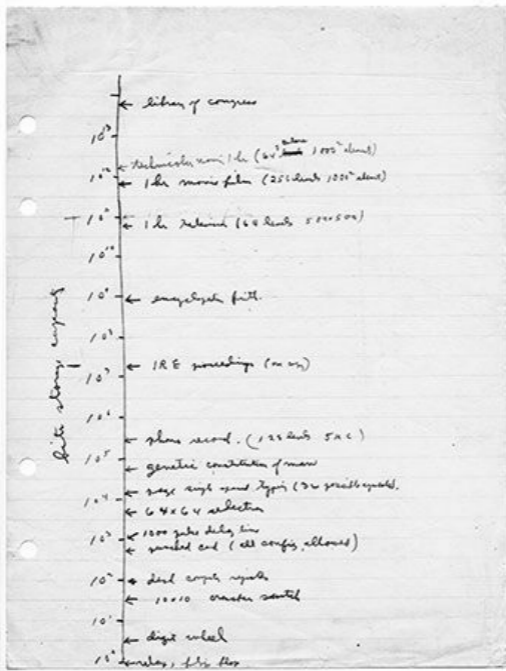 library of congress
10¹³
technicolor movie 1 hr (64³ 1000² elements)
10¹²
1 hr movie film (256 levels 1000² element)
10¹¹
1 hr television (64 levels 500x500)
10¹⁰
10⁹
encyclopedia britt.
10⁸
bits storage capacity
10⁷
IRE proceedings
10⁶
phono record. (128 levels
10⁵
genetic constitution of man
page single spaced typing (32 possible symbols).
10⁴
64x64 selection
1000 pulse delay line
10³
punched card (all config. allowed)
10²
10x10 crossbar switch
10¹
digit wheel
10⁰
relay, flip flop